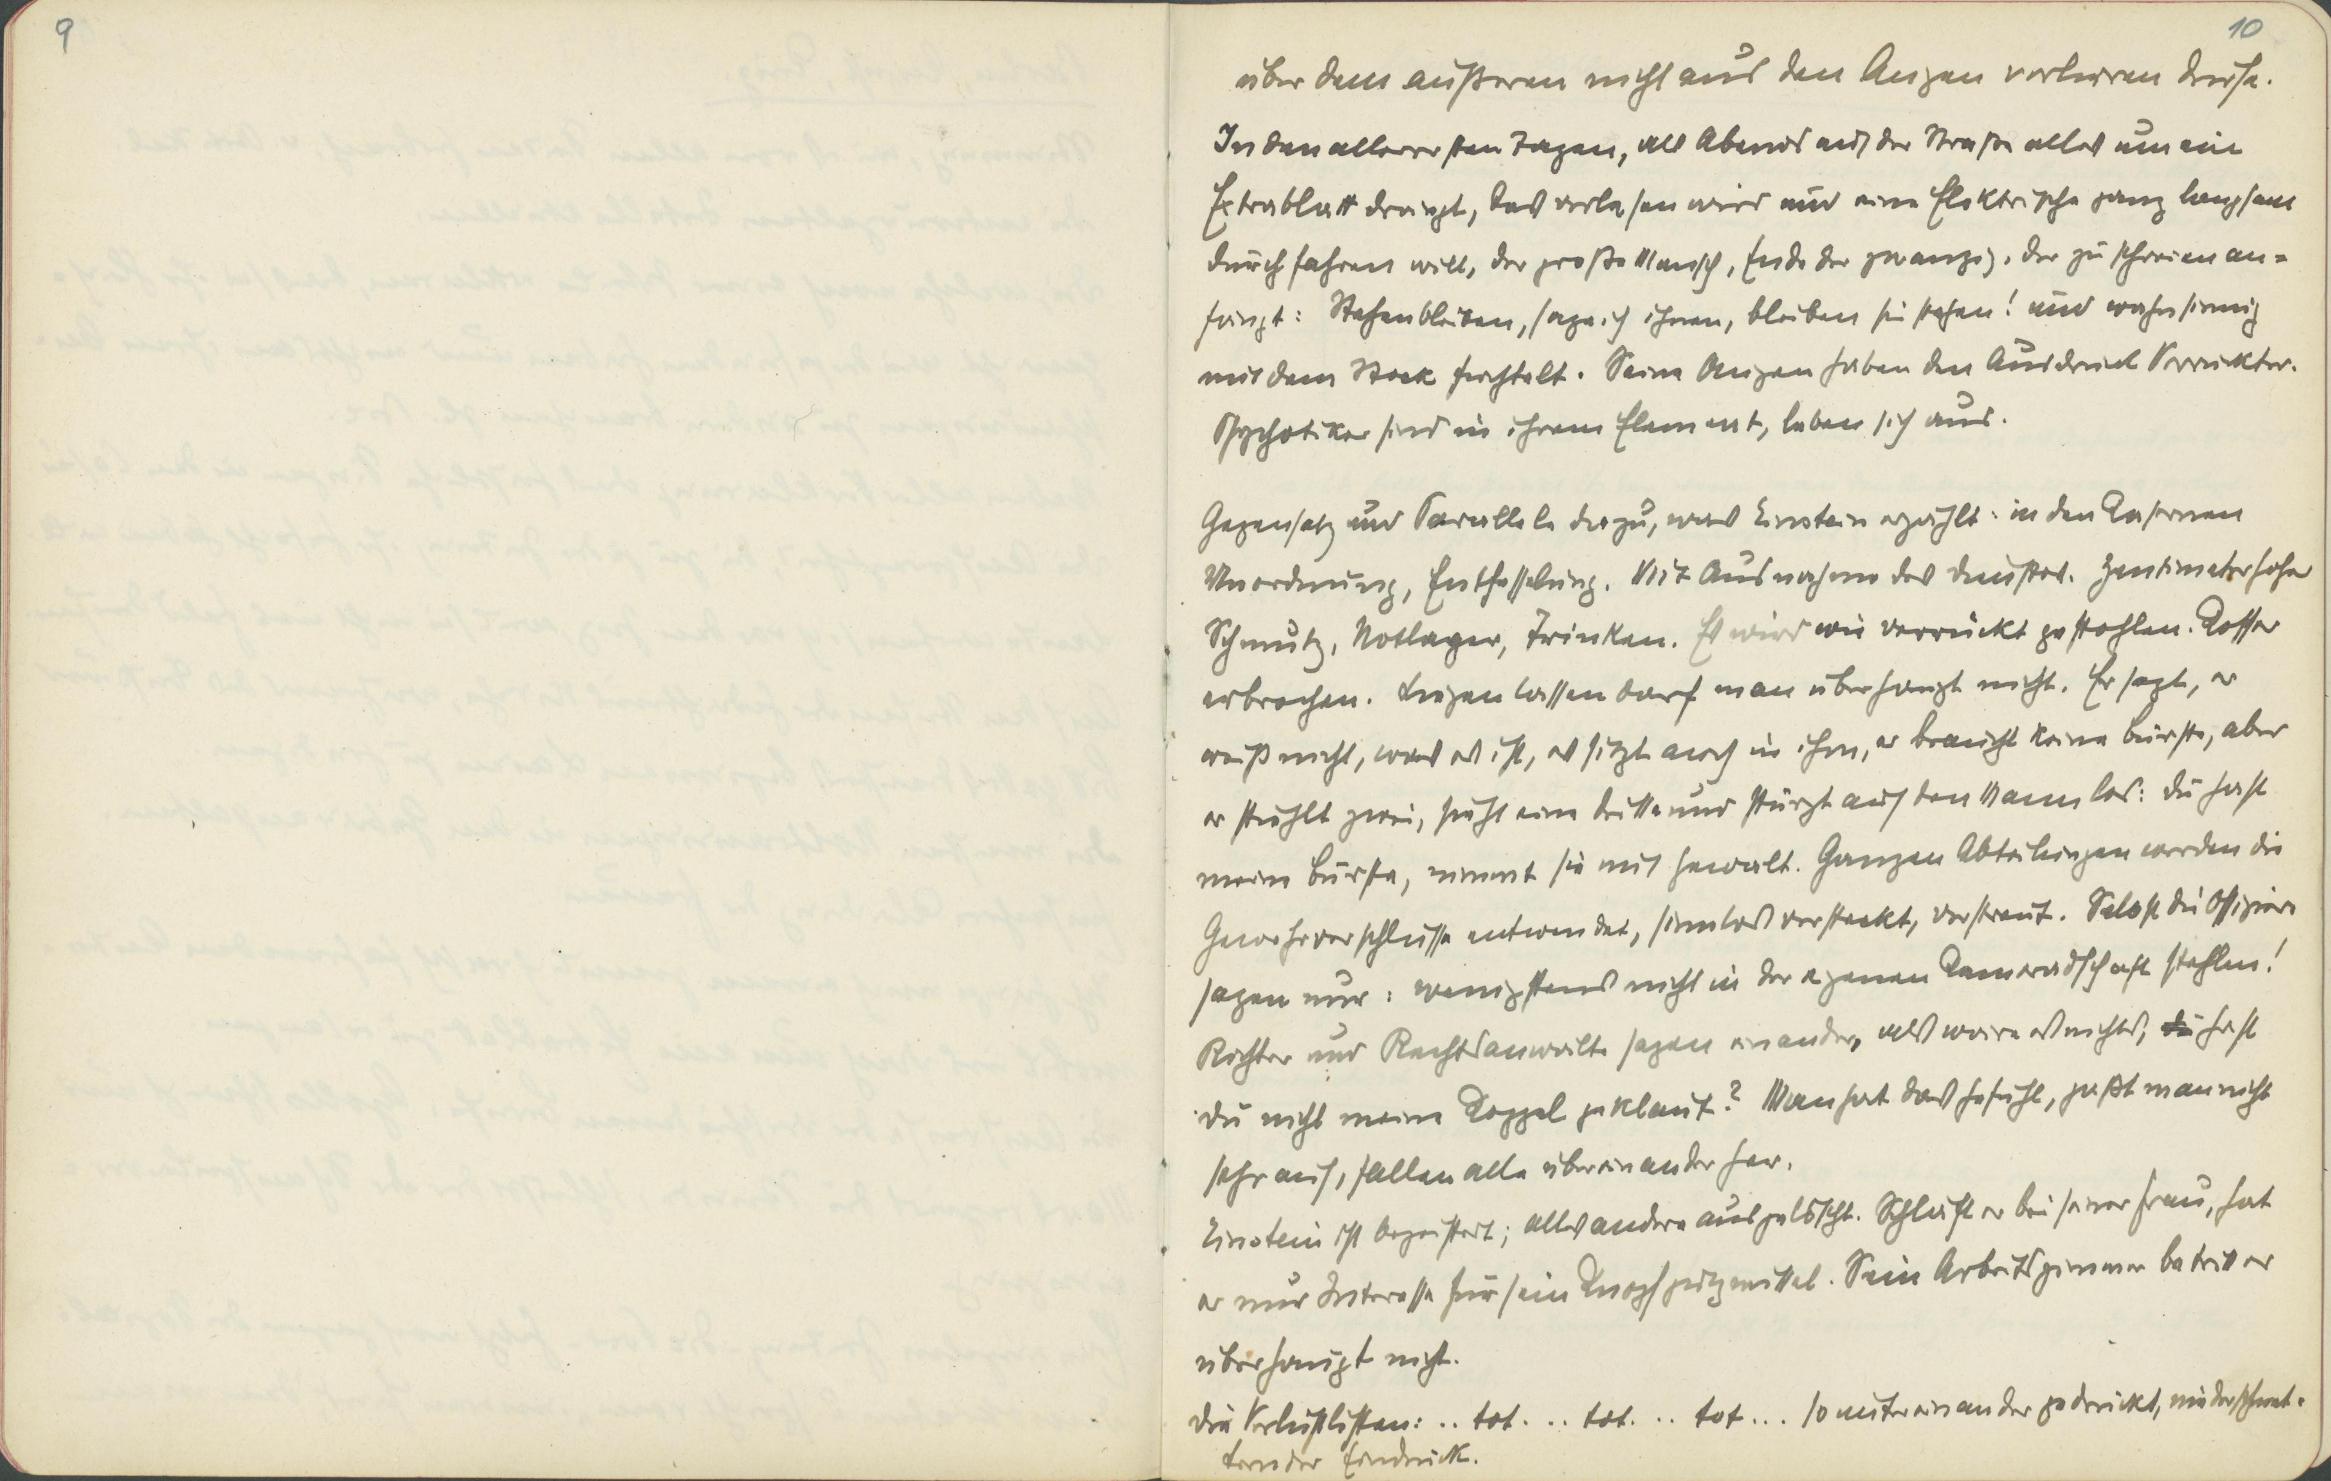 9
10
über dem äußeren nicht aus den Augen verlieren dürfe.
In den allerersten Tagen, als Abends auf der Straße alles um ein
Extrablatt drängt, das verlesen wird und eine Elektrische ganz langsam
durchfahren will, der große Mensch, Ende der zwanzig, der zu schreien an=
fängt: Stehenbleiben, sage ich ihnen, bleiben sie stehen! und wahnsinnig
mit dem Stock fuchtelt. Seine Augen haben den Ausdruck Verrückter.
Psychotiker sind in ihrem Element, leben sich aus.
Gegensatz und Parallele dazu, was Einstein erzählt: in den Kasernen
Unordnung, Entfesselung. Mit Ausnahme des Dienstes. Zentimeterhoher
Schmutz, Notlager, Trinken. Es wird wie verrückt gestohlen. Koffer
erbrochen. Liegen lassen darf man überhaupt nicht. Er sagt, er
weiß nicht, was es ist, es sitzt auch in ihm, er braucht keine Bürste, aber
er stiehlt zwei, sieht eine dritte und stürzt auf den Mann los: du hast
meine Bürste, nimmt sie mit Gewalt. Ganzen Abteilungen werden die
Gewehrverschlüsse entwendet, sinnlos versteckt, verstreut. Selbst die Offiziere
sagen nur: wenigstens nicht in der eigenen Kameradschaft stehlen!
Richter und Rechtsanwälte sagen einander, als wäre es nichts, du hast
du nicht meine Koppel geklaut? Man hat das Gefühl, paßt man nicht
sehr auf, fallen alle übereinander her.
Einstein ist begeistert; alles andere ausgelöscht. Schläft er bei seiner Frau, hat
er nur Interesse für sein Knopfputzmittel. Sein Arbeitszimmer betritt er
überhaupt nicht.
Die Verlustlisten: .. tot. .. tot. .. tot ... so untereinander gedruckt, niederschmet=
ternder Eindruck.